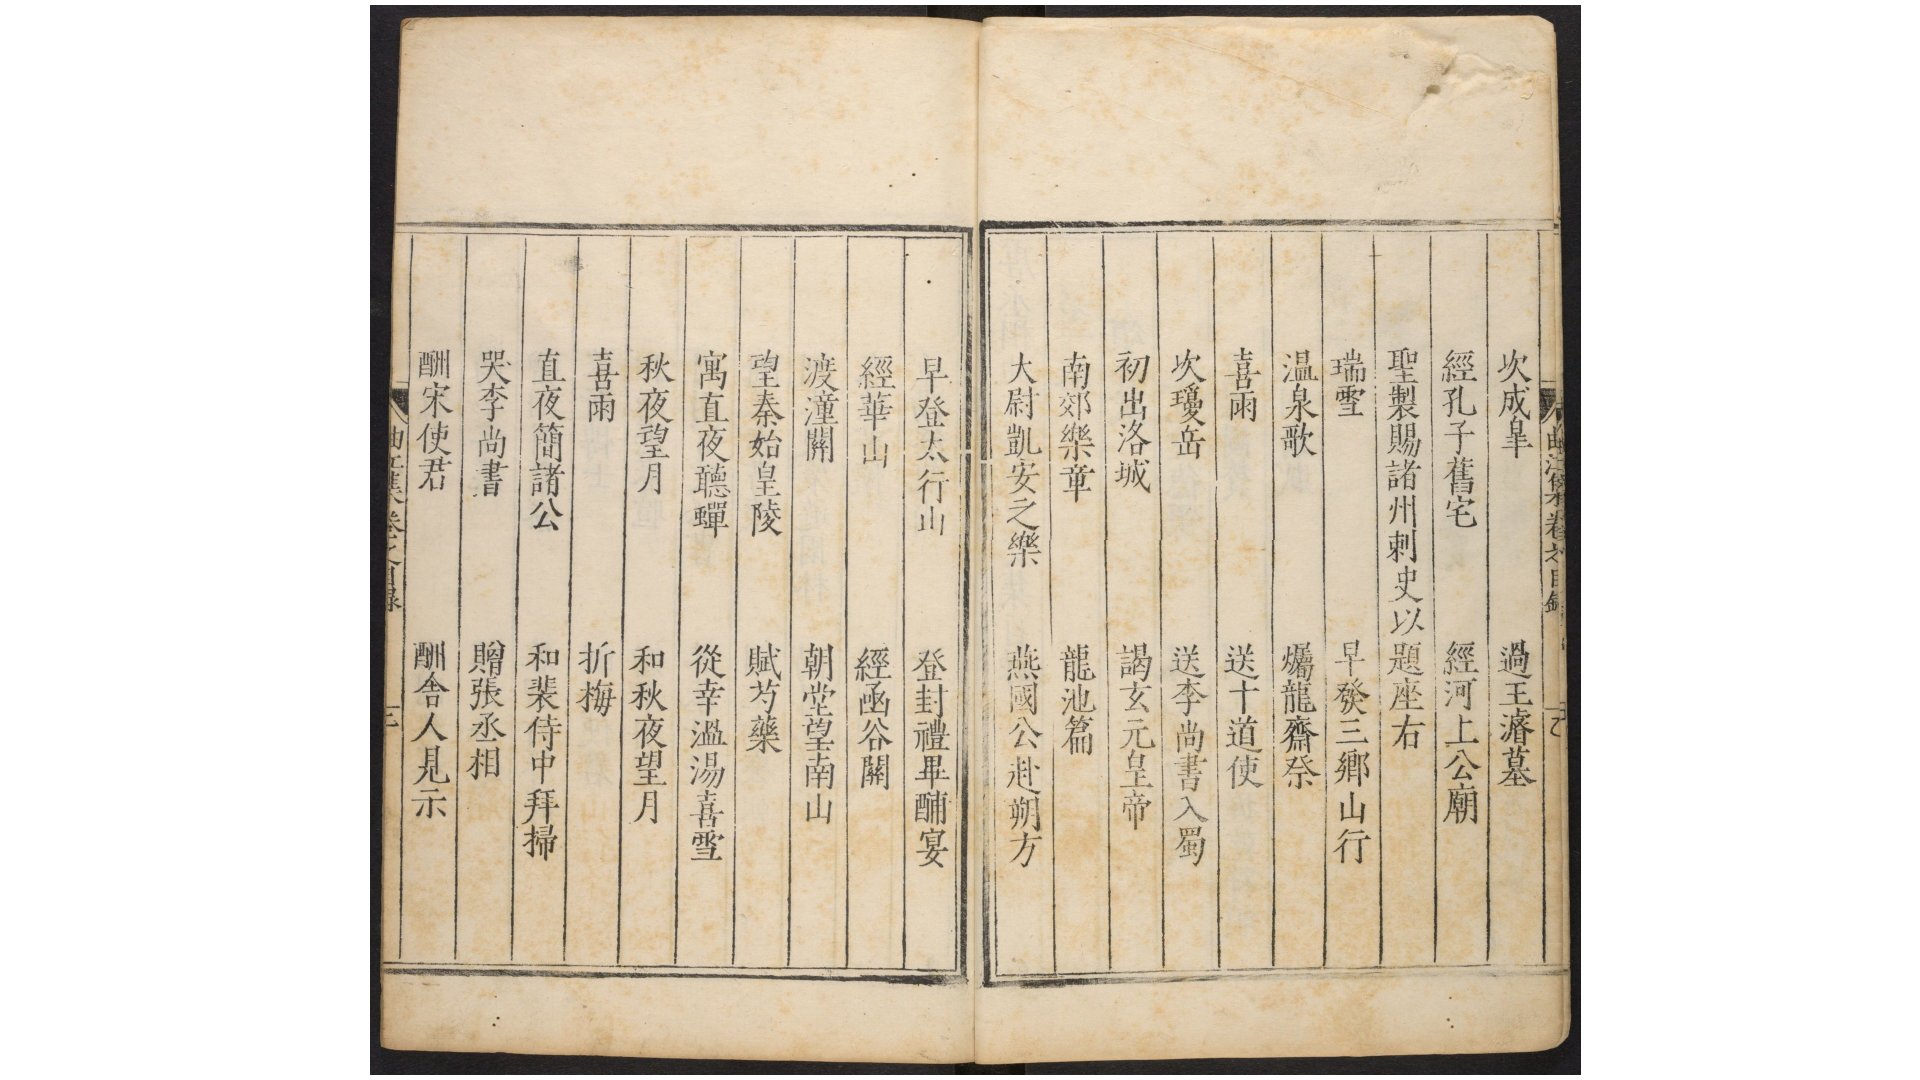 次成皐 過王濬墓
經孔子舊宅 經河上公廟
聖製賜諸州刺史以題座右
瑞雪 早發三鄉山行
温泉歌 爥龍齋祭
喜雨 送十道使
次瓊岳 送李尚書入蜀
初出洛城 謁玄元皇帝
南郊樂章 龍池篇
大尉凱安之樂 燕國公赴朔方
早登太行山 登封禮畢酺宴
經華山 經函谷關
渡潼關 朝堂望南山
望秦始皇陵 賦芍藥
寓直夜聽蟬 從幸溫湯喜雪
秋夜望月 和秋夜望月
喜雨 折梅
直夜簡諸公 和裴侍中拜掃
哭李尚書 贈張丞相
酬宋使君 酬舍人見示
曲江集卷之目錄